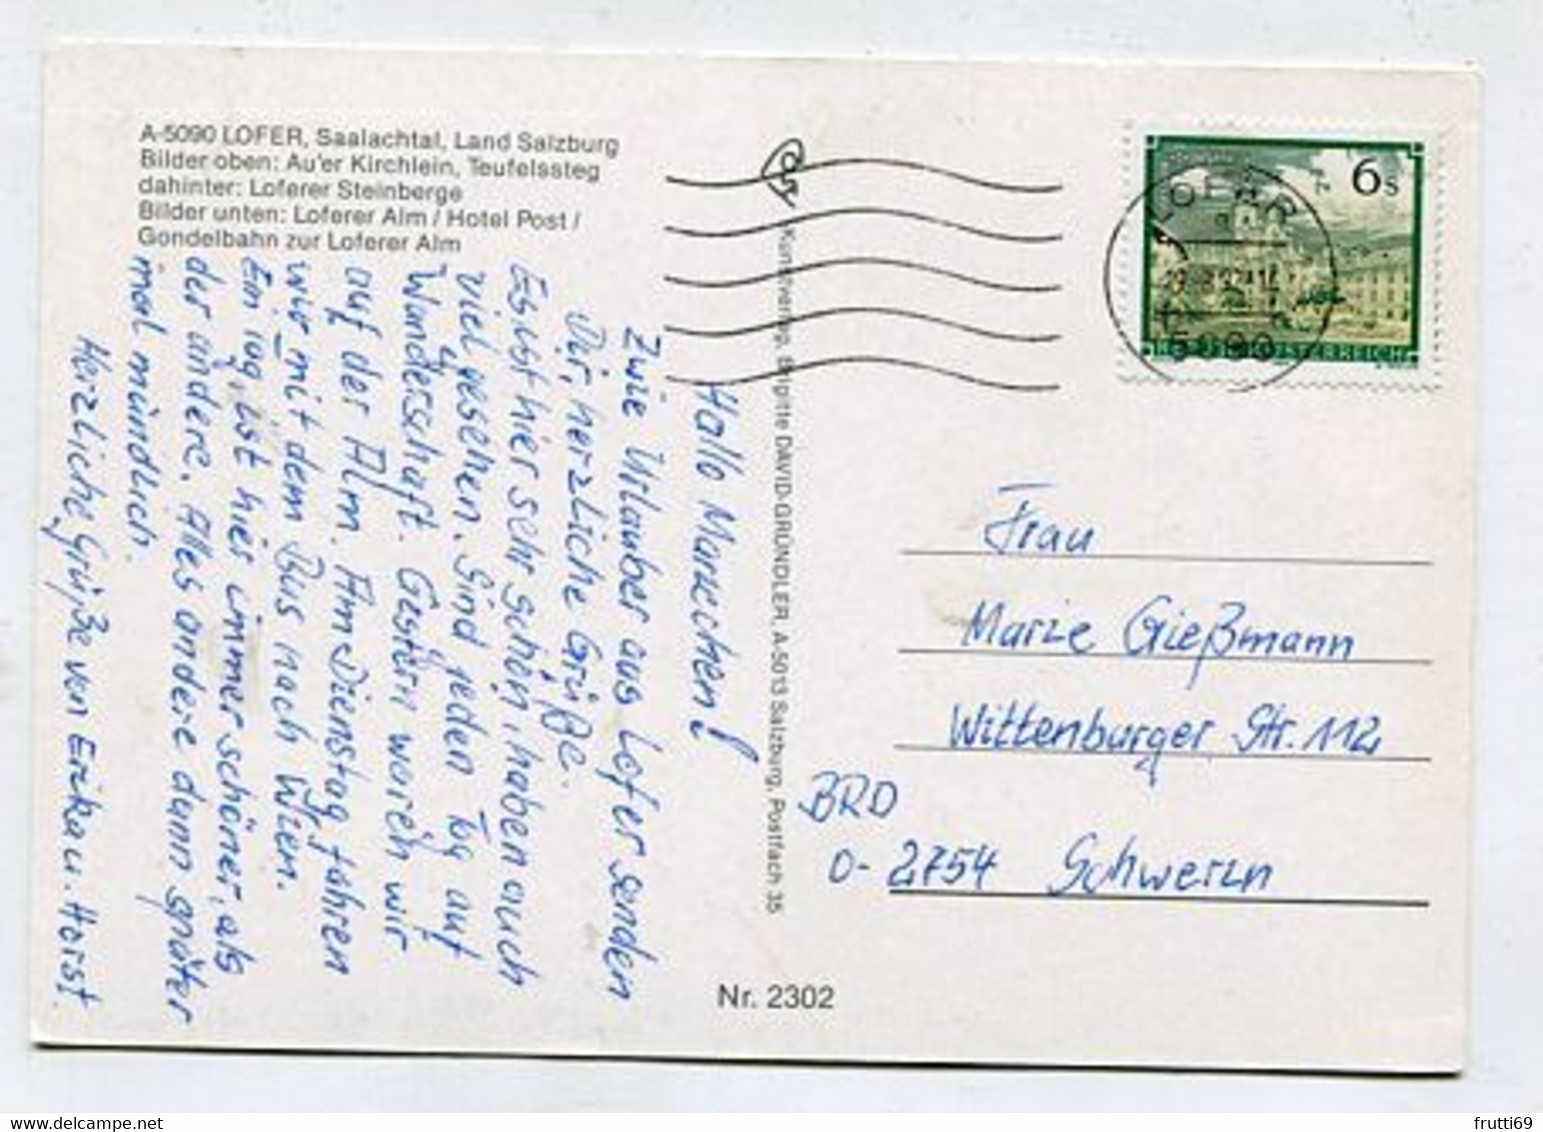 A-5090 LOFER, Saalachtal, Land Salzburg
Bilder oben: Au'er Kirchlein, Teufelssteg
dahinter: Loferer Steinberge
Bilder unten: Loferer Alm / Hotel Post /
Gondelbahn zur Loferer Alm
Hallo Mariechen!
Zwie Urlauber aus Lofer senden
Dir, herzliche Grüße.
Es ist hier sehr schön, haben auch
viel gesehen. Sind jeden Tag auf
Wanderschaft. Gestern waren wir
auf der Alm. Am Dienstag fahren
wir mit dem Bus nach Wien.
Ein Tag ist hier immer schöner, als
der andere. Alles andere dann später
mal mündlich.
Herzliche Grüße von Erika u. Horst
Kunstverlag, Brigitte DAVID-GRÜNDLER, A-5013 Salzburg, Postfach 35
Nr. 2302
6 S
LOFER
5090
ÖSTERREICH
Frau
Marie Gießmann
Wittenburger Str. 112
BRD
O-2754 Schwerin
frutti69